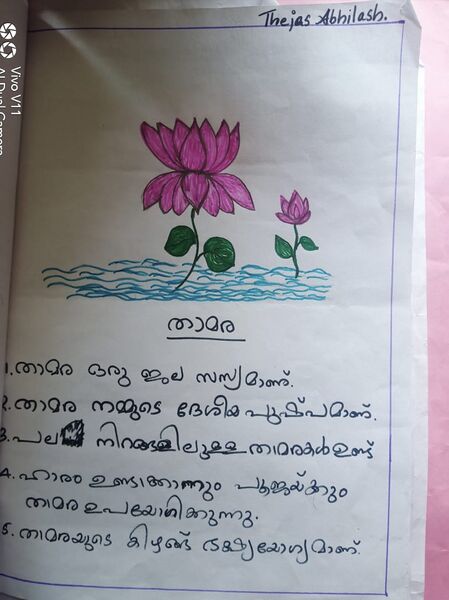 Thejas Abhilash.
Vivo V11
AI Dual Camera
താമര
1. താമര ഒരു ജല സസ്യമാണ്.
2. താമര നമ്മുടെ ദേശീയ പുഷ്പമാണ്.
3. പല നിറങ്ങളിലുള്ള താമരകൾ ഉണ്ട്
4. ഹാരം ഉണ്ടാക്കാനും പൂജയ്ക്കും
താമര ഉപയോഗിക്കുന്നു.
5. താമരയുടെ കിഴങ്ങ് ഭക്ഷ്യയോഗ്യമാണ്.